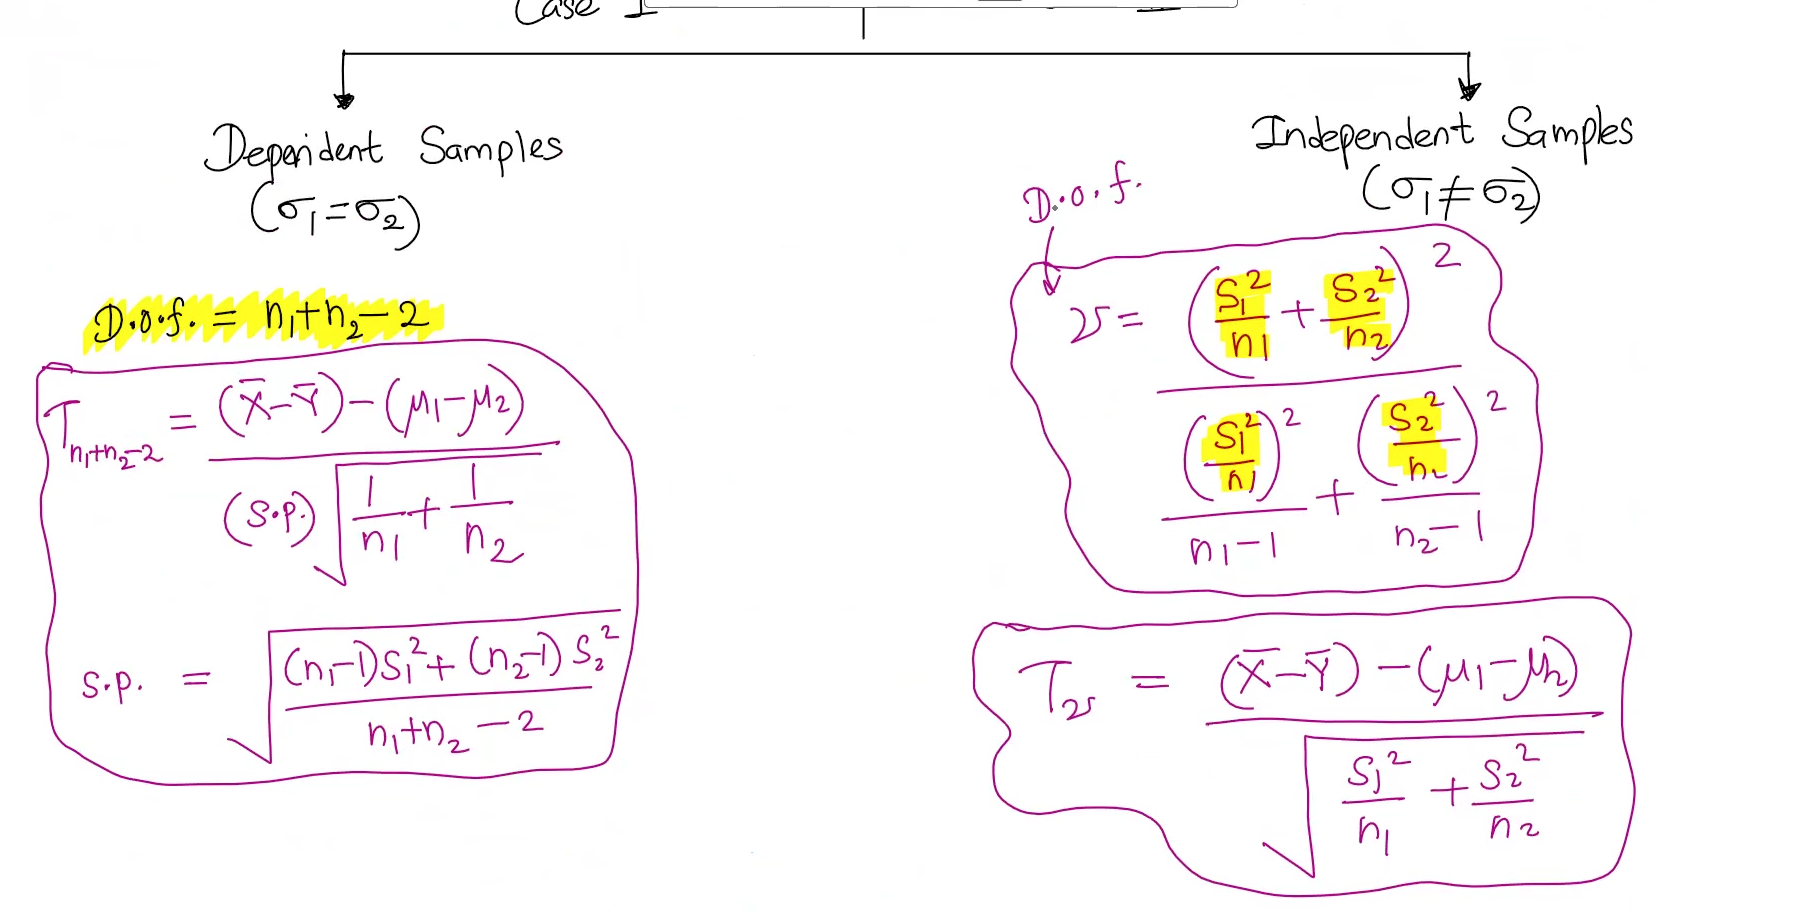 Case I
Dependent Samples
(σ₁=σ₂)
D.o.f. = n₁+n₂-2
T_{n₁+n₂-2} = ((X̄-Ȳ)-(μ₁-μ₂)) / ((s.p.)√(1/n₁ + 1/n₂))
s.p. = √(((n₁-1)S₁²+(n₂-1)S₂²) / (n₁+n₂-2))
Independent Samples
(σ₁≠σ₂)
D.o.f.
ν = (S₁²/n₁ + S₂²/n₂)² / ((S₁²/n₁)²/(n₁-1) + (S₂²/n₂)²/(n₂-1))
T_ν = ((X̄-Ȳ)-(μ₁-μ₂)) / √(S₁²/n₁ + S₂²/n₂)